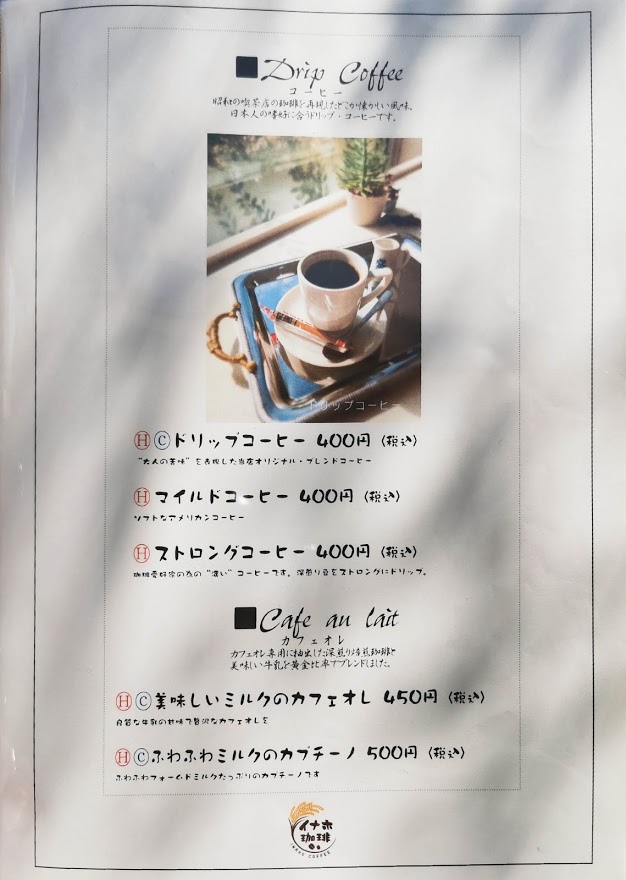 ■Drip Coffee
コーヒー
昭和の喫茶店の珈琲を再現したどこか懐かしい風味。
日本人の嗜好に合うドリップ・コーヒーです。
ドリップコーヒー
Ⓗ Ⓒ ドリップコーヒー 400円 (税込)
"大人の苦味"を表現した当店オリジナル・ブレンドコーヒー
Ⓗ マイルドコーヒー 400円 (税込)
ソフトなアメリカンコーヒー
Ⓗ ストロングコーヒー 400円 (税込)
珈琲愛好家の為の"濃い"コーヒーです。深煎り豆をストロングにドリップ。
■Cafe au lait
カフェオレ
カフェオレ専用に抽出した深煎り焙煎珈琲と
美味しい牛乳を黄金比率でブレンドしました。
Ⓗ Ⓒ 美味しいミルクのカフェオレ 450円 (税込)
良質な牛乳の甘味で贅沢なカフェオレを
Ⓗ Ⓒ ふわふわミルクのカプチーノ 500円 (税込)
ふわふわフォームドミルクたっぷりのカプチーノです
イナホ
珈琲
INAHO COFFEE